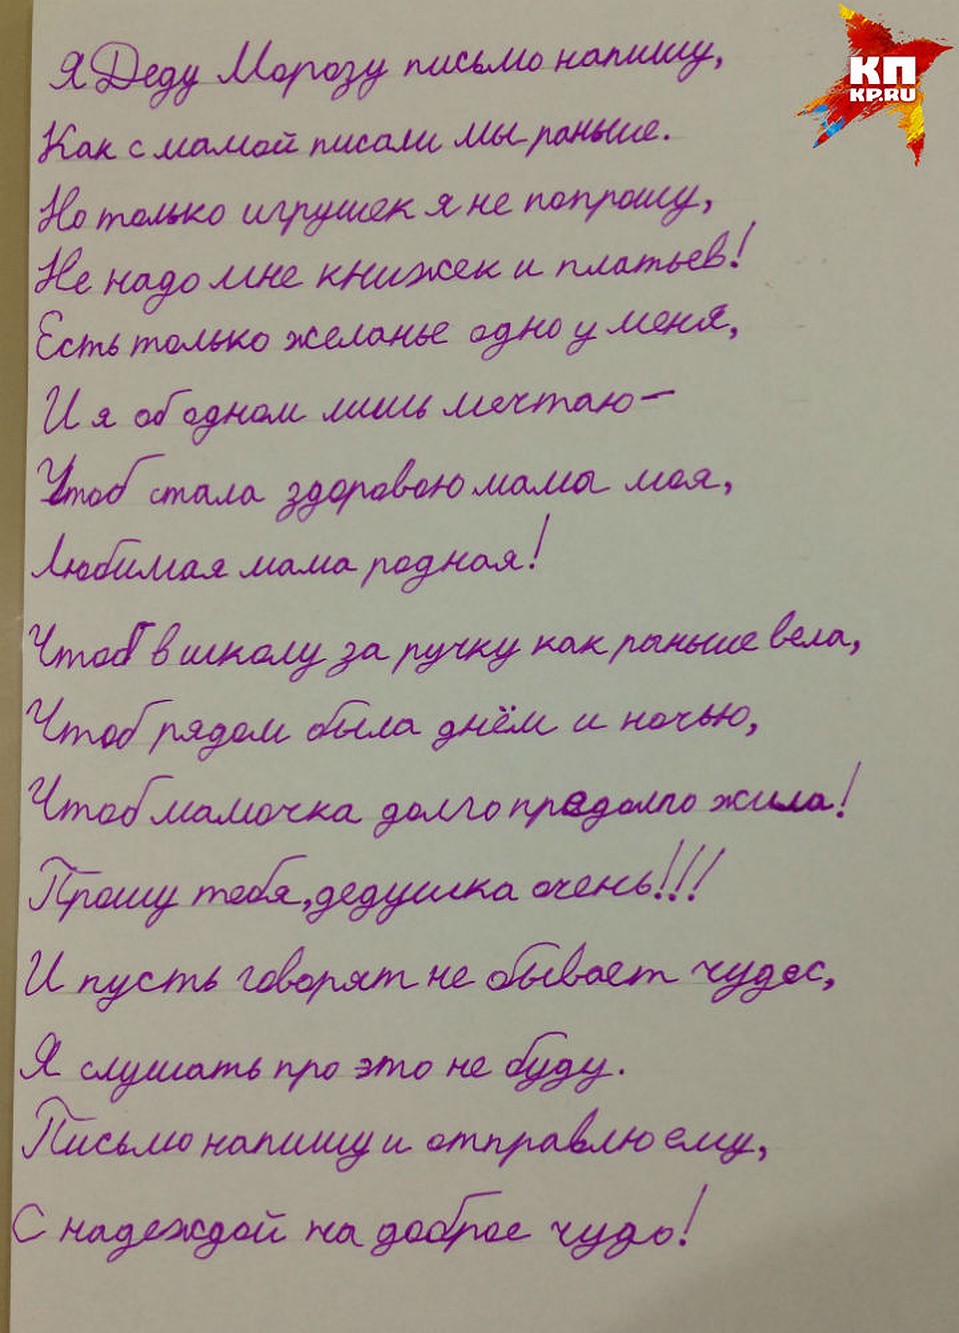 КП
KP.RU
Я Деду Морозу письмо напишу,
Как с мамой писали мы раньше.
Но только игрушек я не попрошу,
Не надо мне книжек и платьев!
Есть только желанье одно у меня,
И я об одном лишь мечтаю-
Чтоб стала здоровою мама моя,
Любимая мама родная!
Чтоб в школу за ручку как раньше вела,
Чтоб рядом была днём и ночью,
Чтоб мамочка долго предолго жила!
Прошу тебя, дедушка очень!!!
И пусть говорят не бывает чудес,
Я слушать про это не буду.
Письмо напишу и отправлю ему,
С надеждой на доброе чудо!